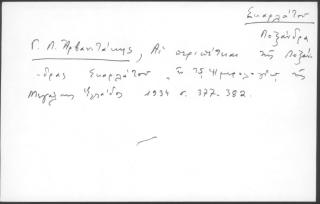 Σκαρλάτου
Λοξάνδρα
Γ. Λ. Ἀρβανιτάκης, Αἱ περιπέτειαι τῆς Λοξάν-
-δρας Σκαρλάτου, ἐν τῷ Ἡμερολογίῳ τῆς
Μεγάλης Ἑλλάδος 1934 σ. 377-382.